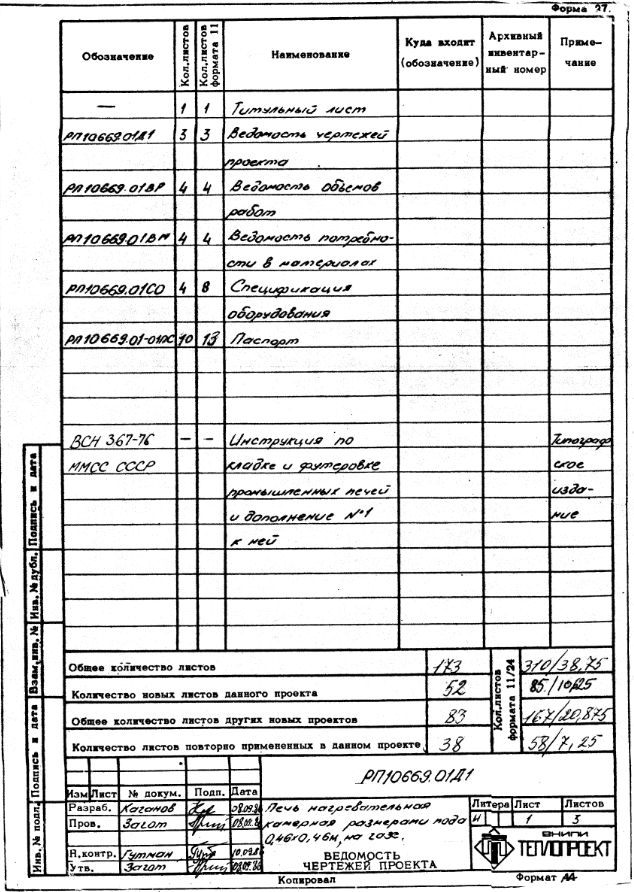 Форма 27.
Обозначение Кол.листов Кол.листов формата 11 Наименование Куда входит (обозначение) Архивный инвентарный номер Примечание
— 1 1 Титульный лист
РП10669.01Д1 3 3 Ведомость чертежей
проекта
РП10669.01ВР 4 4 Ведомость объемов
работ
РП10669.01ВМ 4 4 Ведомость потребно-
сти в материалах
РП10669.01СО 4 8 Спецификация
оборудования
РП10669.01-01ПС 10 13 Паспорт
ВСН 367-76 – – Инструкция по Типограф
ММСС СССР кладке и футеровке ское
промышленных печей изда-
и дополнение №1 ние
к ней
Общее количество листов 173 310/38,75
Количество новых листов данного проекта 52 85/10,25
Общее количество листов других новых проектов 83 167/20,875
Количество листов повторно примененных в данном проекте 38 58/7,25
Кол.листов формата 11/24
РП10669.01Д1
Изм Лист № докум. Подп. Дата
Разраб. Каганов
Пров. Загот
Н.контр. Гутман
Утв. Загот
Печь нагревательная
камерная размерами пода
0,46х0,46м, на газе.
ВЕДОМОСТЬ
ЧЕРТЕЖЕЙ ПРОЕКТА
Литера Лист Листов
И 1 3
ВНИПИ
ТЕПЛОПРОЕКТ
Копировал Формат А4
Инв. № подл. Подпись и дата Взам.инв. № Инв. № дубл. Подпись и дата